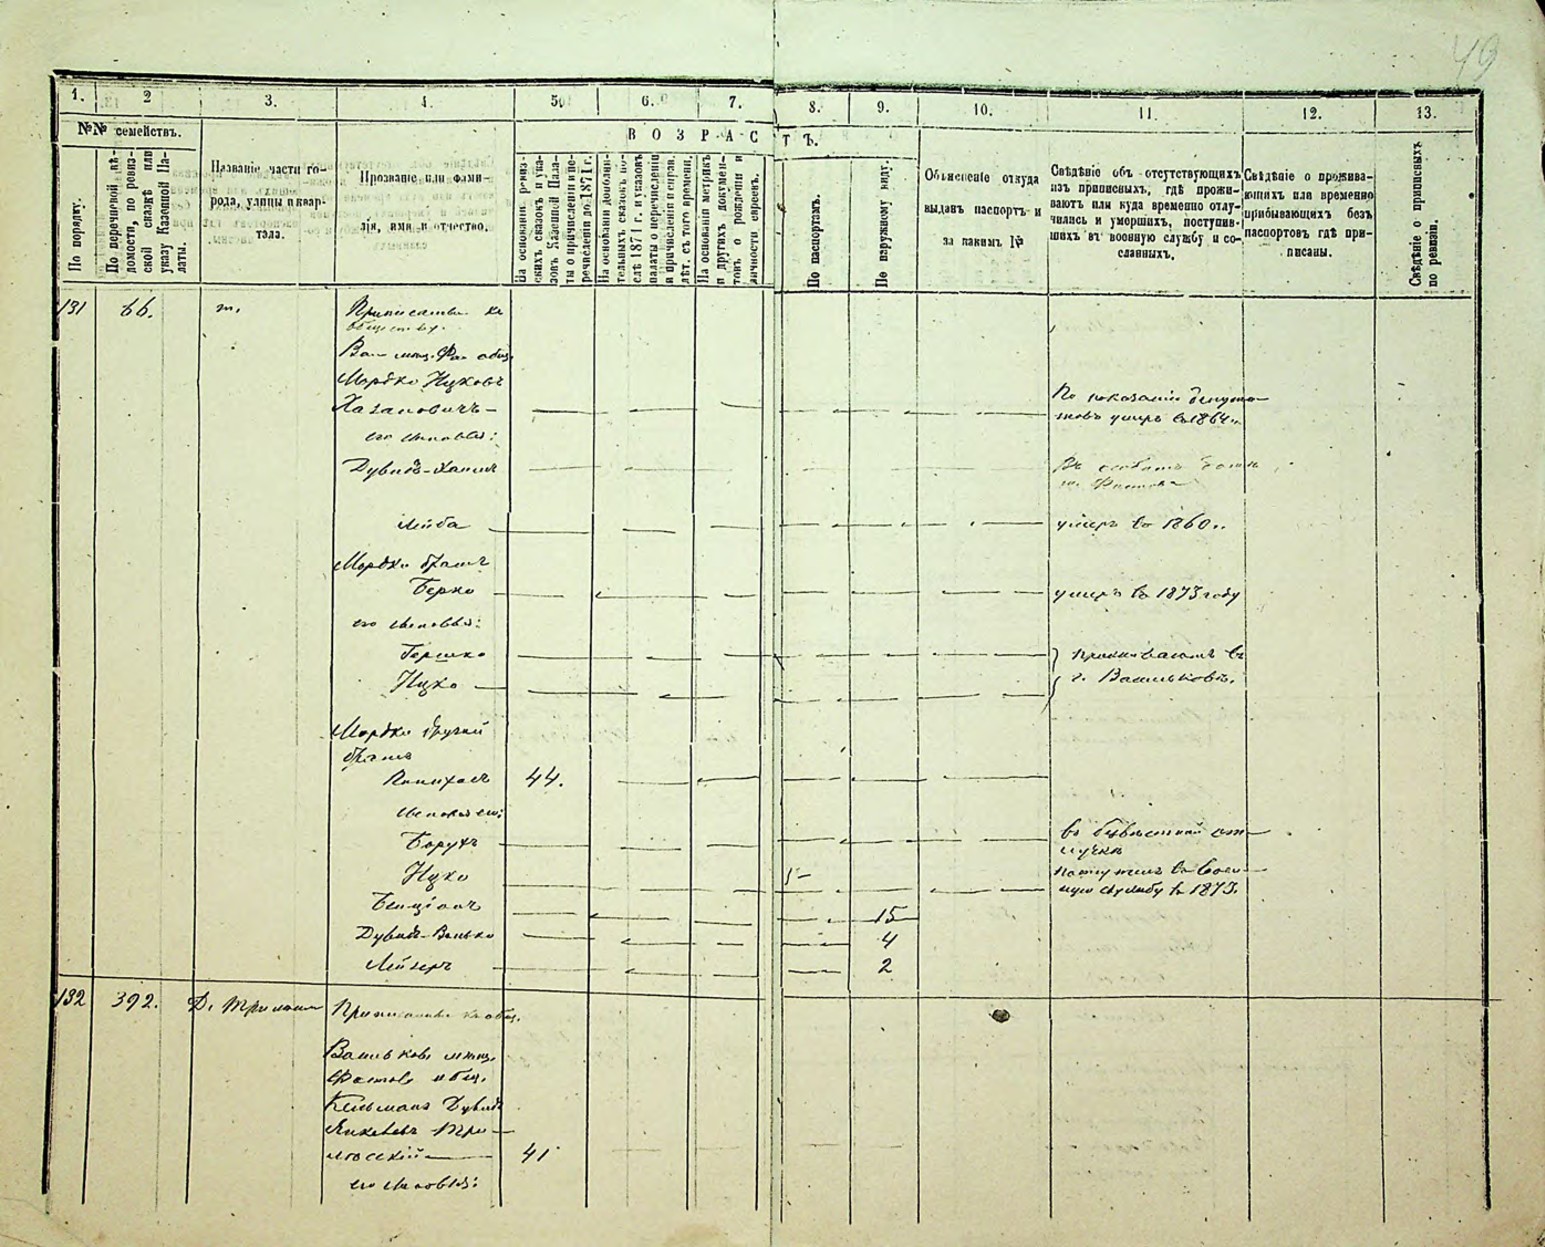 49
1. 2 3. 4. 5. 6. 7. 8. 9. 10. 11. 12. 13.
№№ семействъ.
ВОЗРАСТЪ.
По порядку.
По перечневой вѣ-
домости, по ревиз-
ской сказкѣ или
указу Казенной Па-
латы.
Названіе части го-
рода, улицы и квар-
тала.
Прозваніе или фами-
лія, имя и отчество.
На основаніи ревиз-
скихъ сказокъ и ука-
зовъ Казенной Пала-
ты о причисленіи и пе-
речисленіи до 1871 г.
На основаніи дополни-
тельныхъ сказокъ по-
слѣ 1871 г. и указовъ
палаты о перечисленіи
и причисленіи и справ.
лѣт. съ того времени.
На основаніи метрикъ
и другихъ докумен-
товъ о рожденіи и
личности евреевъ.
По паспортамъ.
По наружному виду.
Объясненіе откуда
выданъ паспортъ и
за какимъ №
Свѣдѣніе объ отсутствующихъ
изъ приписныхъ, гдѣ прожи-
ваютъ или куда временно отлу-
чились и умершихъ, поступив-
шихъ въ военную службу и со-
сланныхъ.
Свѣдѣніе о прожива-
ющихъ или временно
прибывающихъ безъ
паспортовъ гдѣ при-
писаны.
Свѣдѣніе о приписныхъ
по ревизіи.
131 66. т. Приписаны къ
обществу.
Мордко Ицковъ
Хазановичъ —
По показанію депута-
товъ умеръ въ 1864 г.
его сыновья:
Дувидъ-Хаимъ
Лейба
умеръ въ 1860 г.
Мордки братъ
Берко
умеръ въ 1873 году
его сыновья:
Гершко
Ицко
Проживаютъ въ
г. Васильковѣ.
Мордки другой
братъ
Пинхасъ 44.
сыновья его:
Борухъ
въ безвѣстной от-
лучкѣ
Ицко
поступилъ въ воен-
ную службу въ 1873.
Бенціонъ 15
Дувидъ-Волько 4
Лейзеръ 2
132 392.
Приписаны къ общ.
Васильков. мѣщ.
Фастов. общ.
Кельманъ Дувидъ
Янкелевъ Три-
лѣсскій 41
его сыновья: